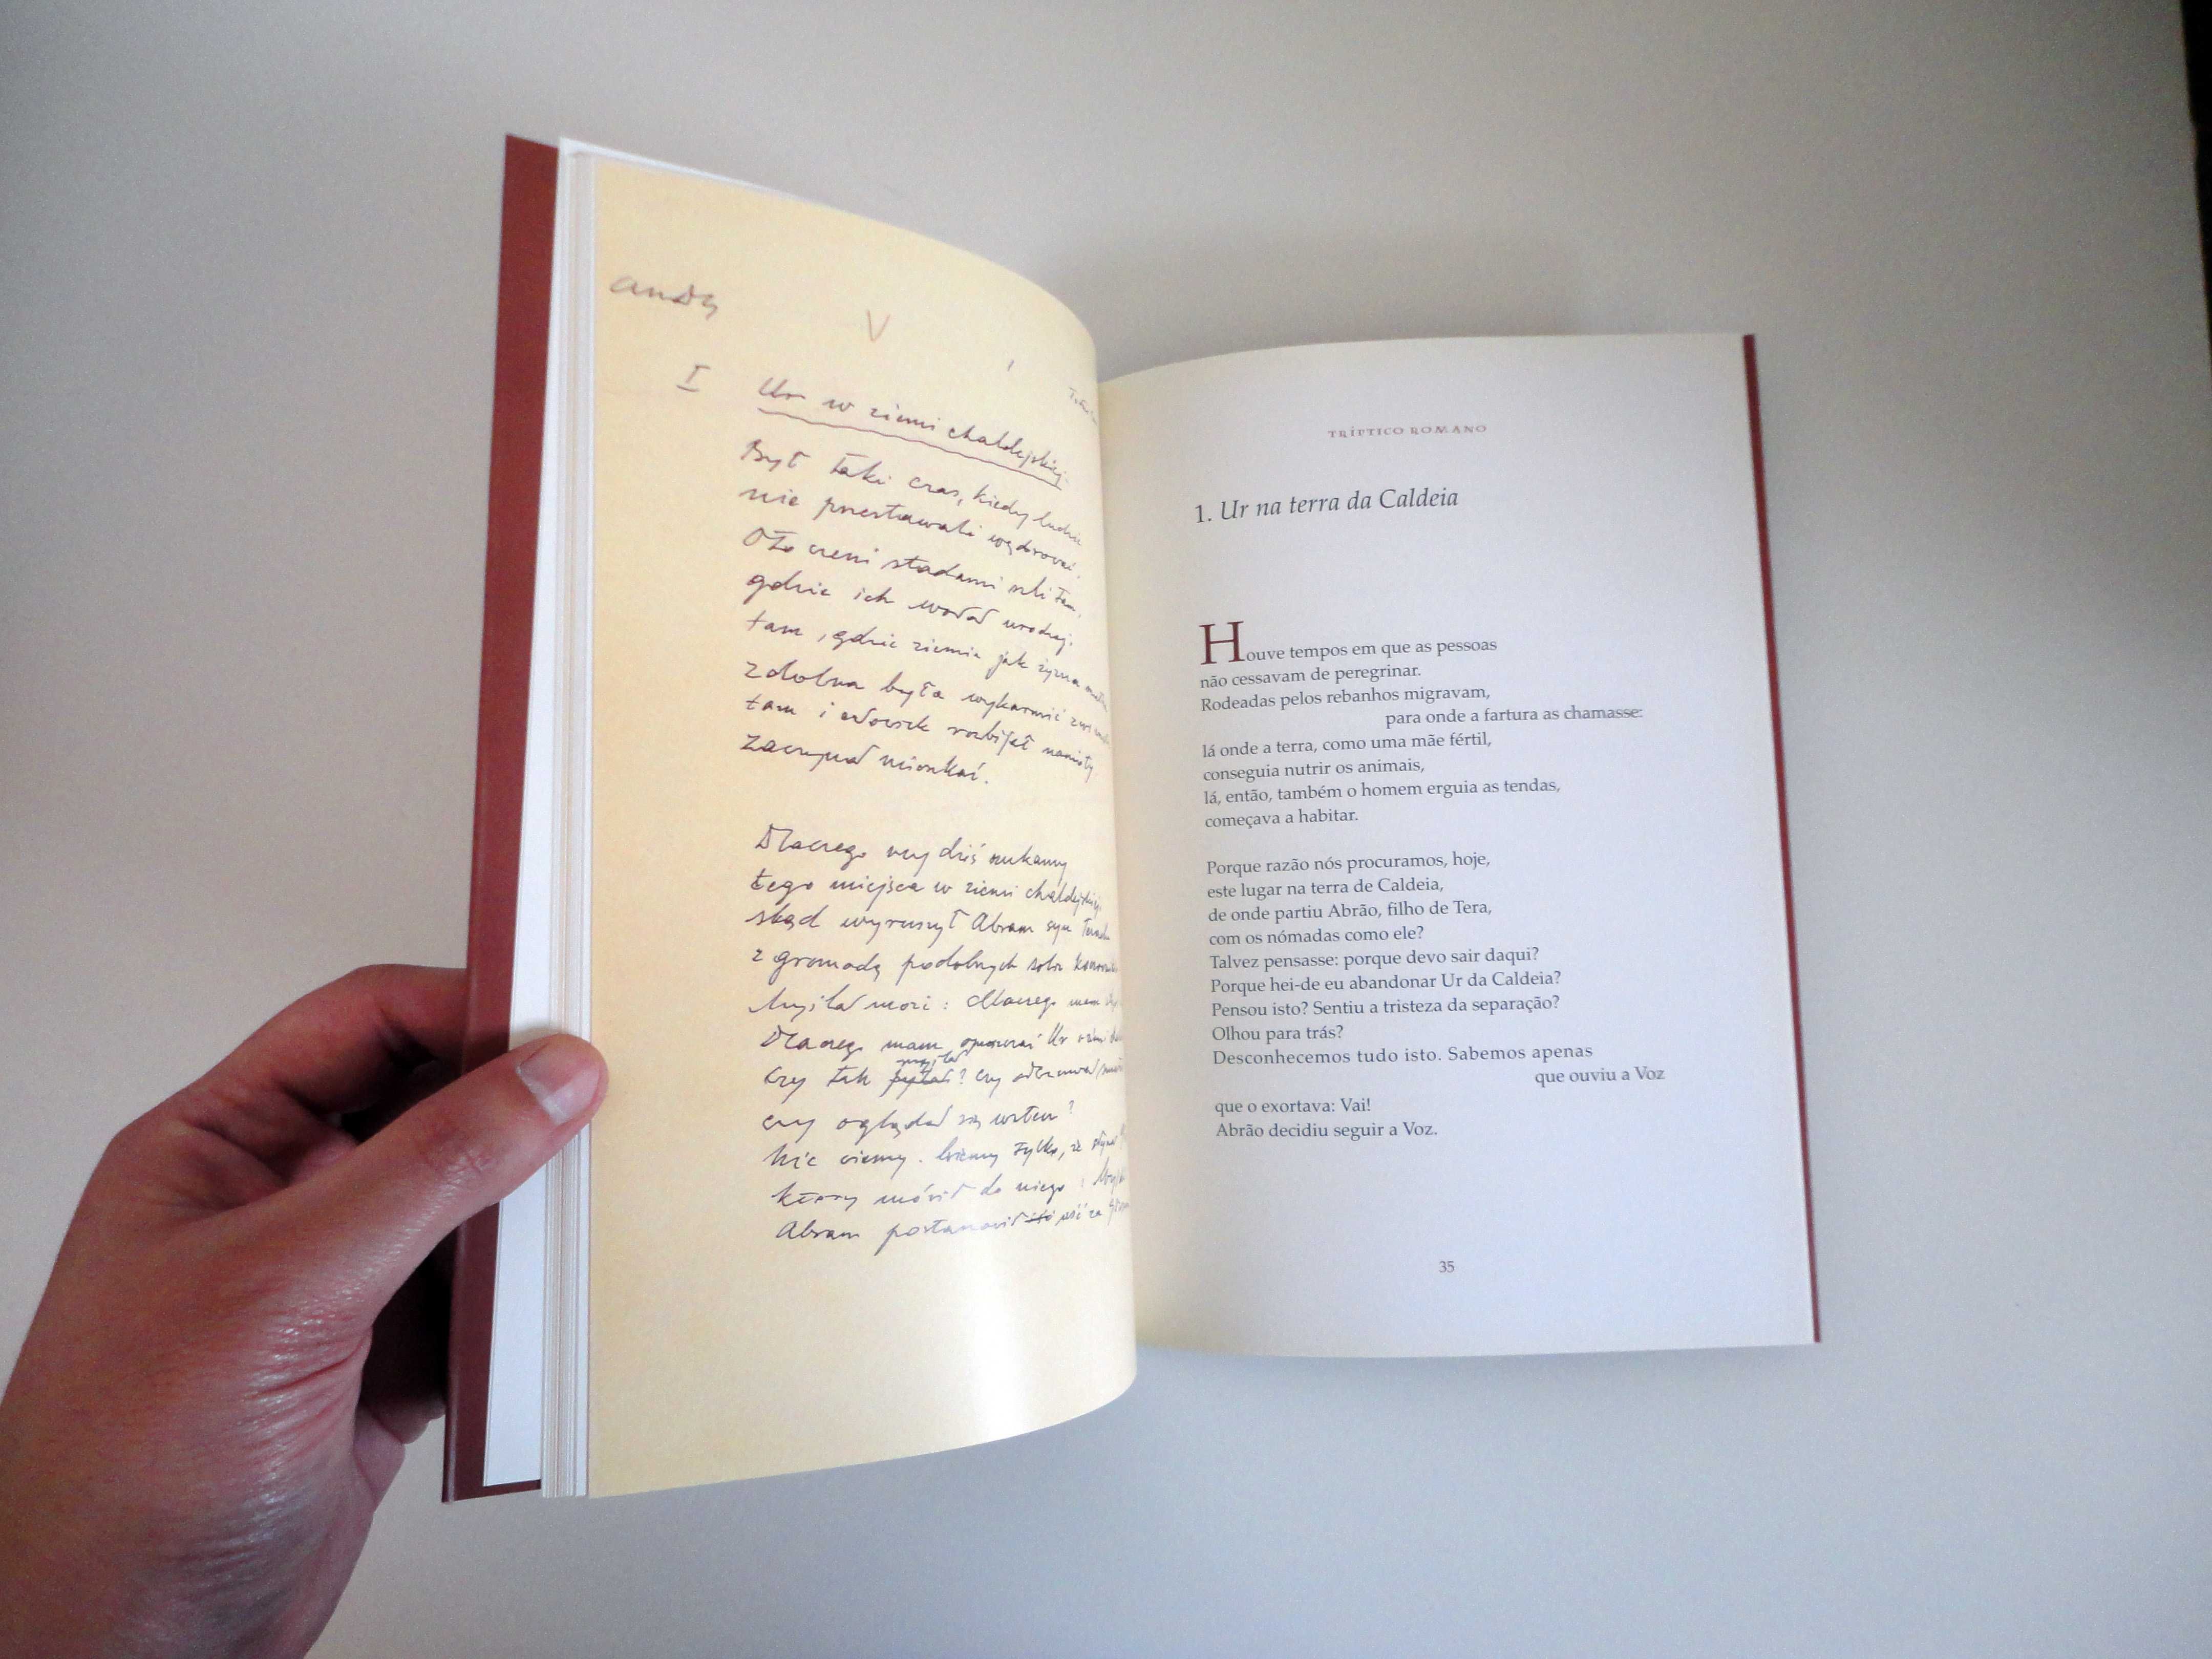 I Ur w ziemi chaldejskiej
Był taki czas, kiedy ludzie
nie przestawali wędrować.
Otoczeni stadami szli tam,
gdzie ich wołał urodzaj.
tam, gdzie ziemia jak żyzna
zdolna była wykarmić
tam i człowiek rozbijał namioty
zaczynał mieszkać.
Dlaczego my dziś szukamy
tego miejsca w ziemi chaldejskiej
skąd wyruszył Abram syn
z gromadą podobnych sobie
Myślał może : Dlaczego mam
Dlaczego mam opuszczać Ur
myślał
Czy tak ? czy odczuwał
czy oglądał się wstecz?
Nic wiemy. Wiemy tylko, że
który mówił do niego :
Abram postanowił iść za
TRÍPTICO ROMANO
1. Ur na terra da Caldeia
Houve tempos em que as pessoas
não cessavam de peregrinar.
Rodeadas pelos rebanhos migravam,
para onde a fartura as chamasse:
lá onde a terra, como uma mãe fértil,
conseguia nutrir os animais,
lá, então, também o homem erguia as tendas,
começava a habitar.
Porque razão nós procuramos, hoje,
este lugar na terra de Caldeia,
de onde partiu Abrão, filho de Tera,
com os nómadas como ele?
Talvez pensasse: porque devo sair daqui?
Porque hei-de eu abandonar Ur da Caldeia?
Pensou isto? Sentiu a tristeza da separação?
Olhou para trás?
Desconhecemos tudo isto. Sabemos apenas
que ouviu a Voz
que o exortava: Vai!
Abrão decidiu seguir a Voz.
35